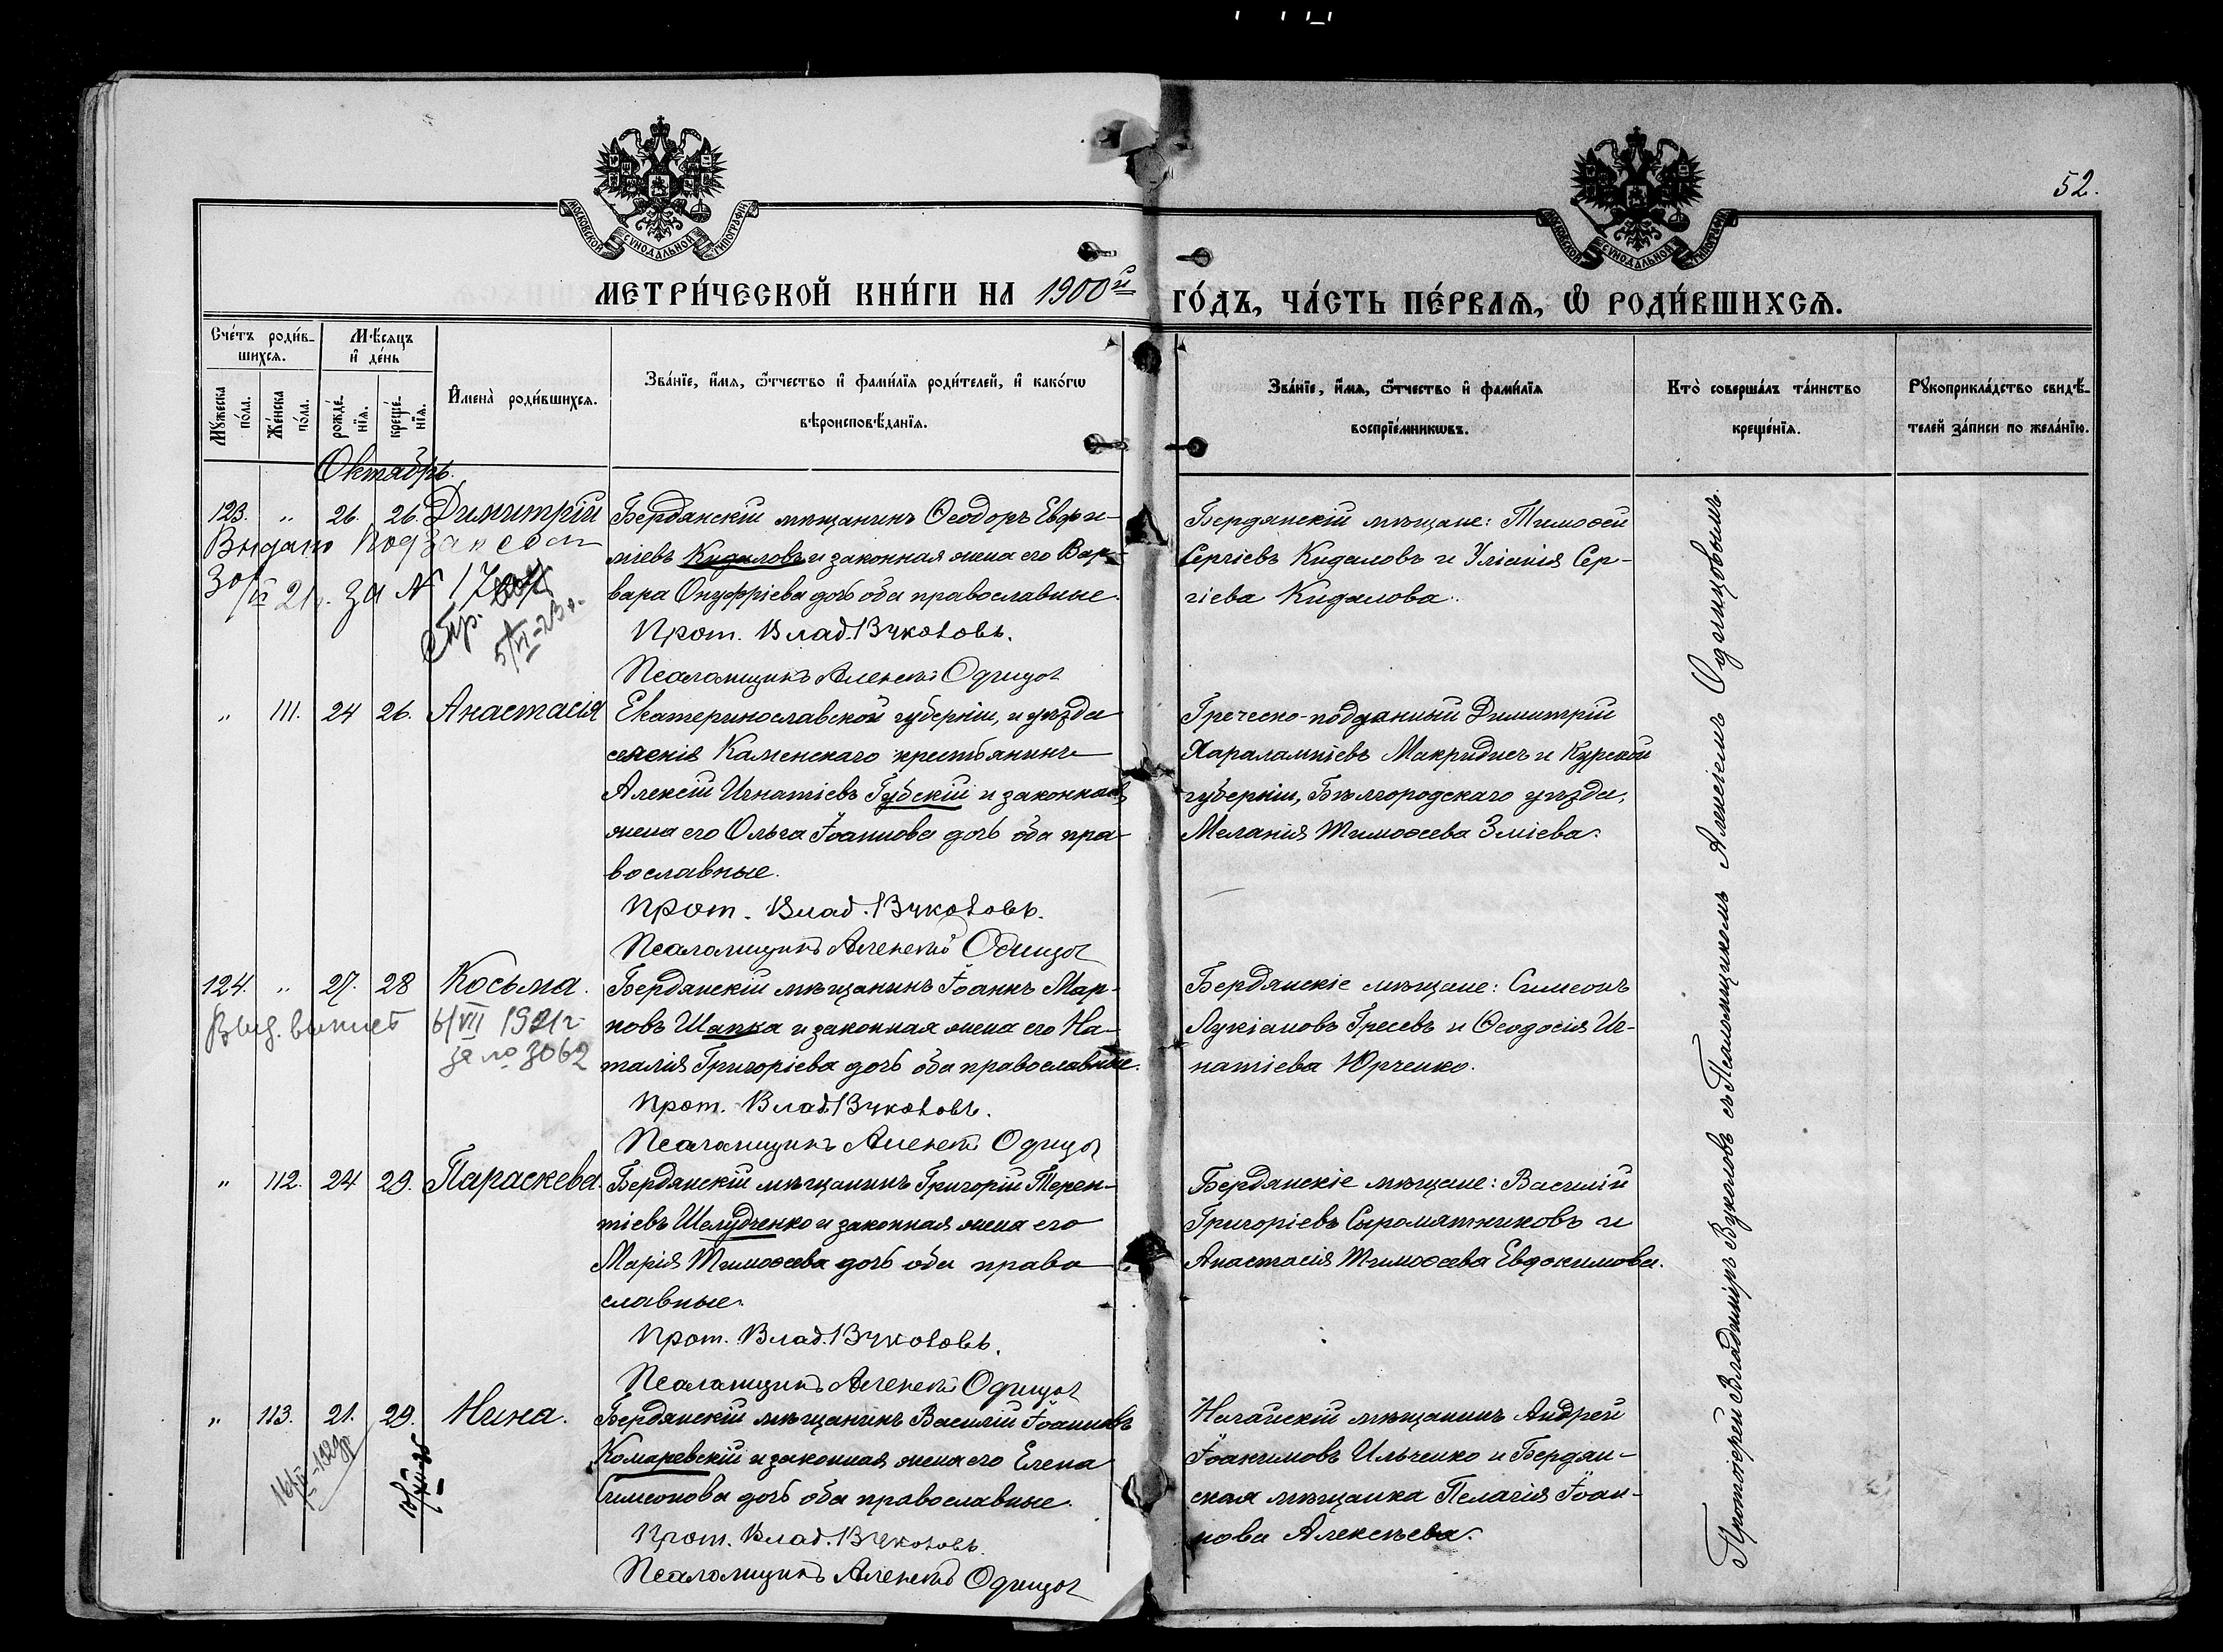 52.
МОСКОВСКОЙ СѴНОДАЛЬНОЙ ТИПОГРАФІИ
МОСКОВСКОЙ СѴНОДАЛЬНОЙ ТИПОГРАФІИ
МЕТРИ́ЧЕСКОЙ КНИ́ГИ НА 1900й ГО́ДЪ, ЧА́СТЬ ПЕ́РВАЯ, Ѡ РОДИ́ВШИХСЯ.
Сче́тъ роди́в-
шихся.
Мѣ́сяцъ
и де́нь
Мꙋ́жеска по́ла.
Же́нска по́ла.
рожде́нїя.
креще́нїя.
И҆мена̀ роди́вшихся.
Зва́нїе, и҆́мя, ѻ҆́тчество и҆ фами́лїя роди́телей, и҆ како́гѡ
вѣроисповѣ́данїя.
Зва́нїе, и҆́мя, ѻ҆́тчество и҆ фами́лїя
воспрїе́мникѡвъ.
Кто̀ соверша́лъ та́инство
креще́нїя.
Рꙋкоприкла́дство свидѣ́-
телей за́писи по жела́нїю.
Октябрь.
123. " 26. 26. Димитрій
Бердянскій мѣщанинъ Ѳеодоръ Евфи-
міевъ Кидаловъ и законная жена его Вар-
вара Онуфріева дочь оба православные.
Прот. Влад. Вуколовъ.
Псаломщикъ Алексѣй Одинцов
Бердянскій мѣщане: Тимоѳей
Сергіевъ Кидаловъ и Уліанія Сер-
гіева Кидалова.
Выдано
21 г. за №
5/VI-23 г.
" 111. 24 26. Анастасія
Екатеринославской губерніи, и уѣзда
селенія Каменскаго крестьянинъ
Алексій Игнатіевъ Губскій и законная
жена его Ольга Іоаннова дочь оба пра-
вославные.
Прот. Влад. Вуколовъ.
Псаломщикъ Алексѣй Одинцов
Греческо-подданный Димитрій
Харалампіевъ Макридисъ и Курской
губерніи, Бѣлгородскаго уѣзда,
Меланія Тимоѳеева Зміева.
124. " 27. 28 Косьма.
Бердянскій мѣщанинъ Іоаннъ Мар-
ковъ Шапка и законная жена его На-
талія Григоріева дочь оба православные.
Прот. Влад. Вуколовъ.
Псаломщикъ Алексѣй Одинцов
Бердянскіе мѣщане: Симеонъ
Лукіановъ Гресевъ и Ѳеодосія Иг-
натіева Юрченко.
6/VII 1921 г.
за № 3062
" 112. 24 29. Параскева.
Бердянскій мѣщанинъ Григорій Терен-
тіевъ Шелудченко и законная жена его
Марія Тимоѳеева дочь оба право
славные.
Прот. Влад. Вуколовъ.
Псаломщикъ Алексѣй Одинцов
Бердянскіе мѣщане: Василій
Григоріевъ Сыромятниковъ и
Анастасія Тимоѳеева Евдокимова.
" 113. 21. 29. Нина.
Бердянскій мѣщанинъ Василій Іоанновъ
Комаревскій и законная жена его Елена
Симеонова дочь оба православные.
Прот. Влад. Вуколовъ.
Псаломщикъ Алексѣй Одинцов
Ногайскій мѣщанинъ Андрей
Іоакимовъ Ильченко и Бердян-
ская мѣщанка Пелагія Іоан-
нова Алексѣева.
Протоіерей Владиміръ Вуколовъ съ Псаломщикомъ Алексѣемъ Одинцовымъ.